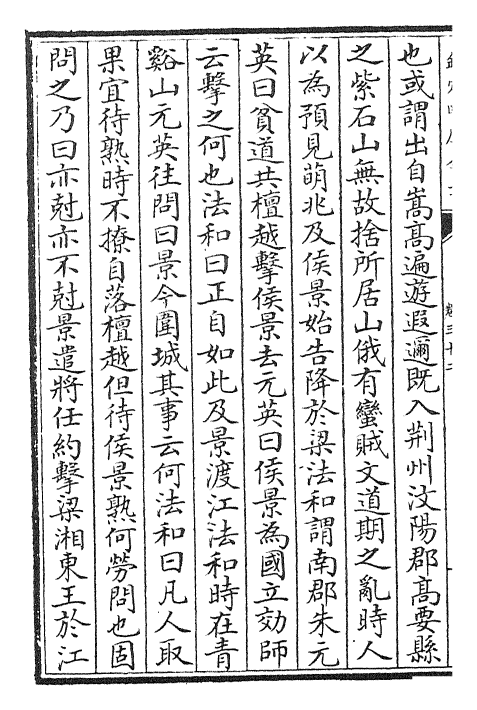 也或謂出自嵩髙遍遊遐邇既入荆州汶陽郡髙要縣
之紫石山無故捨所居山俄有蠻賊文道期之亂時人
以為預見萌兆及侯景始告降於梁法和謂南郡朱元
英曰貧道共檀越擊侯景去元英曰侯景為國立効師
云擊之何也法和曰正自如此及景渡江法和時在青
谿山元英往問曰景今圍城其事云何法和曰凡人取
果宜待熟時不撩自落檀越但待侯景熟何勞問也固
問之乃曰亦尅亦不尅景遣將任約擊梁湘東王於江